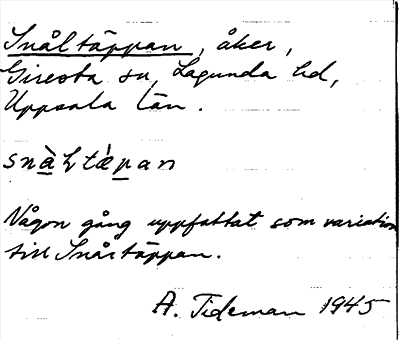 Snåltäppan, åker,
Giresta sn, Lagunda hd,
Uppsala län.
snàltæ̀pan
Någon gång uppfattat som variation
till Snårtäppan.
A. Tideman 1945